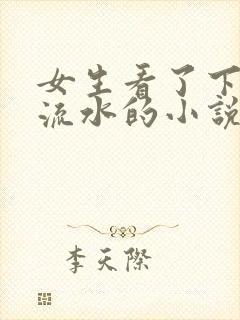 女生看了下
流水的小説
李天際